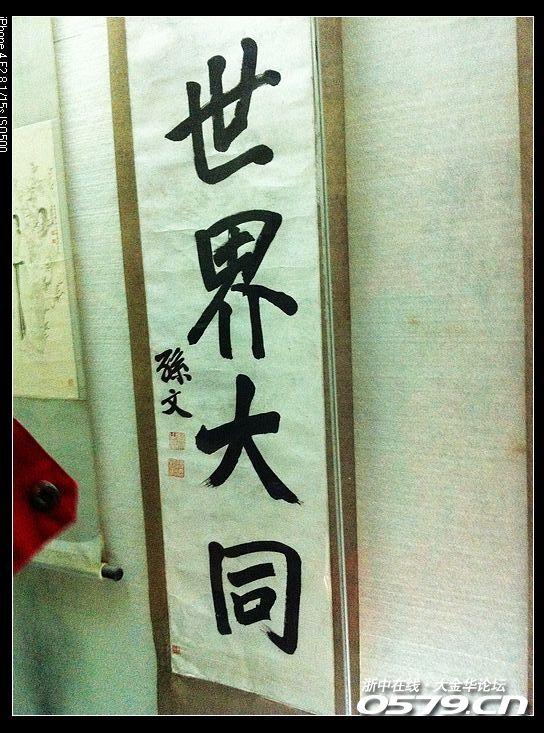 世界大同
孫文
iPhone 4 F2.8 1/15s ISO500
浙中在线·大金华论坛
0579.cn